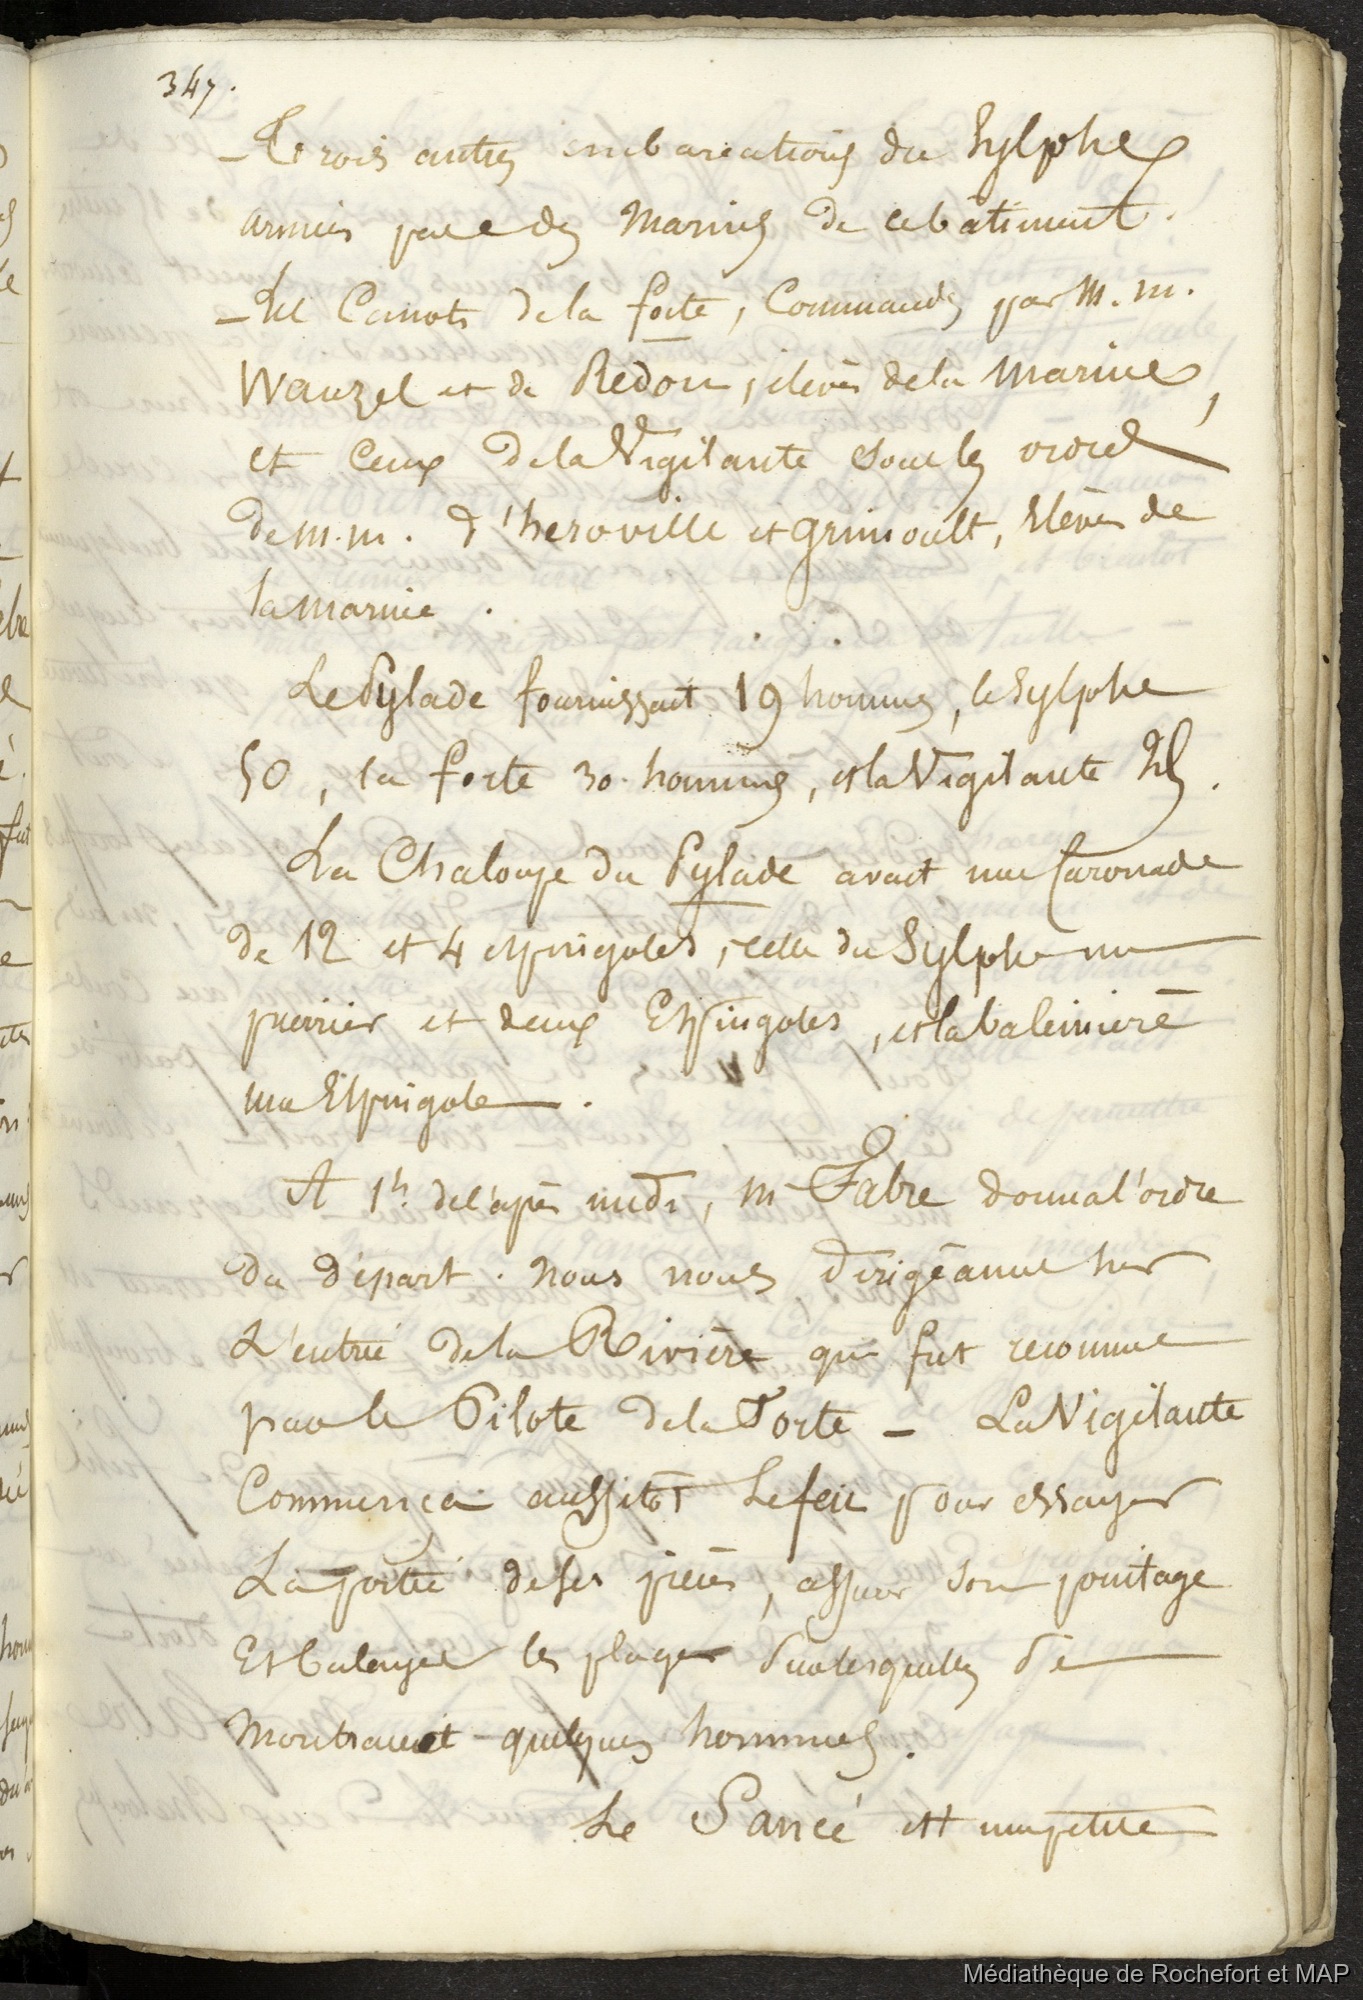 347.
- Trois autres embarcations du Sylphe
armées par des Marins de ce bâtiment.
- Les Canots de la forte, Commandés par M. M.
Wauzel et de Redon, élèves de la Marine,
et Ceux de la Vigilante sous les ordres
de M. M. d'heroville et grimoult, Elèves de
la marine.
Le Pylade fournissait 19 hommes, le Sylphe
50, la forte 30 hommes, et la Vigilante
La Chaloupe du Pylade avait une Caronade
de 12 et 4 espingoles, celle du Sylphe un
pierrier et deux Espingoles, et la baleinière
une Espingole.
A 1h. de l'après midi, M Fabre donna l'ordre
du départ. Nous nous dirigeâmes sur
L'entrée de la Rivière qui fut reconnue
par le Pilote de la Forte - La Vigilante
Commença aussitôt Le feu pour essayer
La portée de ses pièces, assurer son pointage
Et balayer les plages sur lesquelles se
Montraient quelques hommes.
Le Pancé est une petite
Médiathèque de Rochefort et MAP